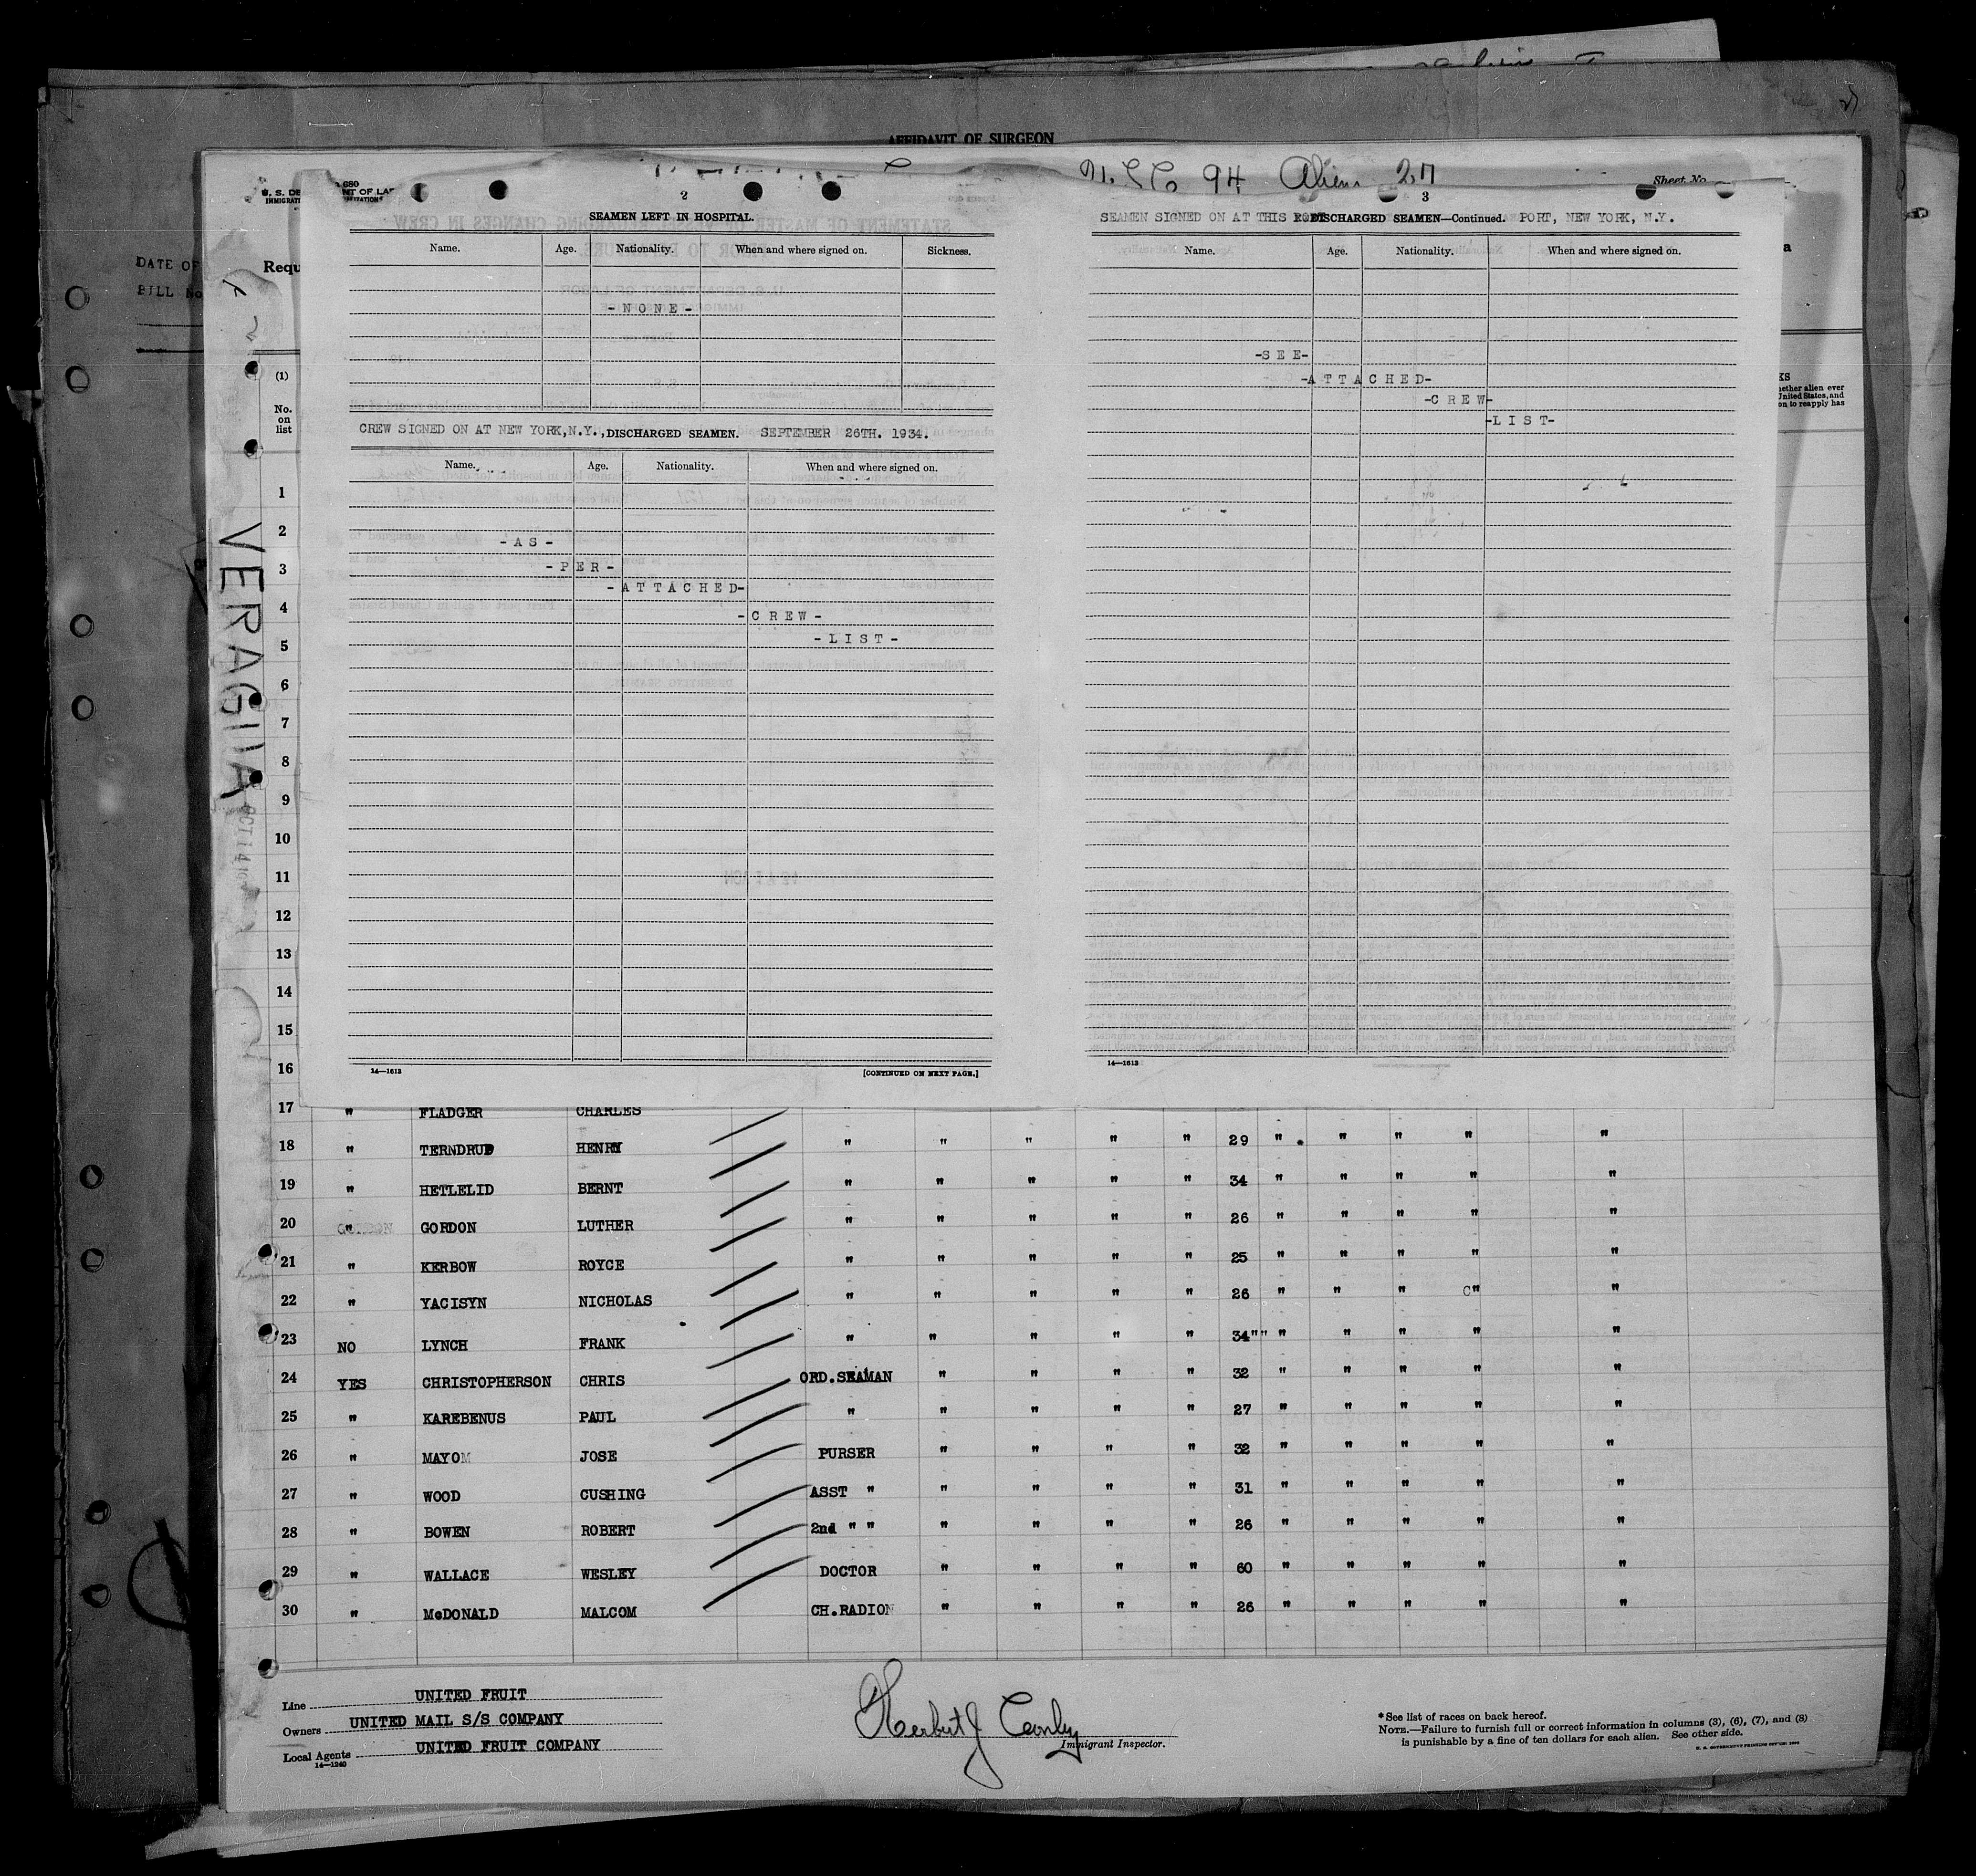 AFFIDAVIT OF SURGEON
94 Aliens 27
Sheet No.
680
U. S. DE NT OF LAB
IMMIGRAT
DATE OF
BILL No
Requ
2
SEAMEN LEFT IN HOSPITAL.
Name. Age. Nationality. When and where signed on. Sickness.
- N O N E -
CREW SIGNED ON AT NEW YORK,N.Y., DISCHARGED SEAMEN. SEPTEMBER 26TH. 1934.
Name. Age. Nationality. When and where signed on.
- A S -
- P E R -
- A T T A C H E D -
- C R E W -
- L I S T -
14—1613 [CONTINUED ON NEXT PAGE.]
3
SEAMEN SIGNED ON AT THIS DISCHARGED SEAMEN—Continued. PORT, NEW YORK, N.Y.
Name. Age. Nationality. When and where signed on.
-S E E-
-A T T A C H E D-
-C R E W-
-L I S T-
14—1613
KS
hether alien ever
United States, and
on to reapply has
VERAGUA
(1)
No.
on
list
1
2
3
4
5
6
7
8
9
10
11
12
13
14
15
16
17 " FLADGER CHARLES
18 " TERNDRUP HENRY " " " " " 29 " " " " "
19 " HETLELID BERNT " " " " " 34 " " " " "
20 " GORDON LUTHER " " " " " 26 " " " " "
21 " KERBOW ROYCE " " " " " 25 " " " " "
22 " YACISYN NICHOLAS " " " " " 26 " " " C" "
23 NO LYNCH FRANK " " " " " 34"" " " " " "
24 YES CHRISTOPHERSON CHRIS ORD.SEAMAN " " " " 32 " " " " "
25 " KAREBENUS PAUL " " " " " 27 " " " " "
26 " MAYOM JOSE PURSER " " " " 32 " " " " "
27 " WOOD CUSHING ASST " " " " " 31 " " " " "
28 " BOWEN ROBERT 2nd " " " " " " 26 " " " " "
29 " WALLACE WESLEY DOCTOR " " " " 60 " " " " "
30 " McDONALD MALCOM CH.RADION " " " " 26 " " " " "
Line UNITED FRUIT
Owners UNITED MAIL S/S COMPANY
Local Agents UNITED FRUIT COMPANY
14—1240
Herbert J Conly
Immigrant Inspector.
* See list of races on back hereof.
NOTE.—Failure to furnish full or correct information in columns (3), (6), (7), and (8)
is punishable by a fine of ten dollars for each alien. See other side.